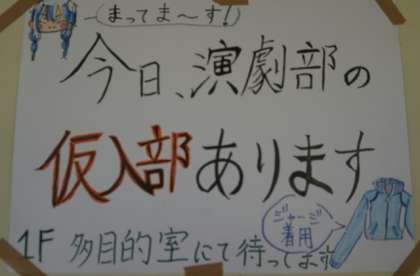 まってま〜す!
今日、演劇部の
仮入部あります
ジャージ
着用
1F 多目的室にて待ってます